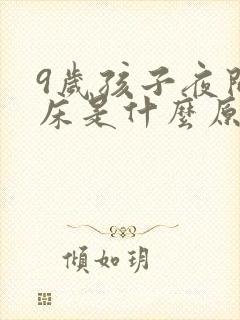 9歲孩子夜
床是什麼原
傾如玥